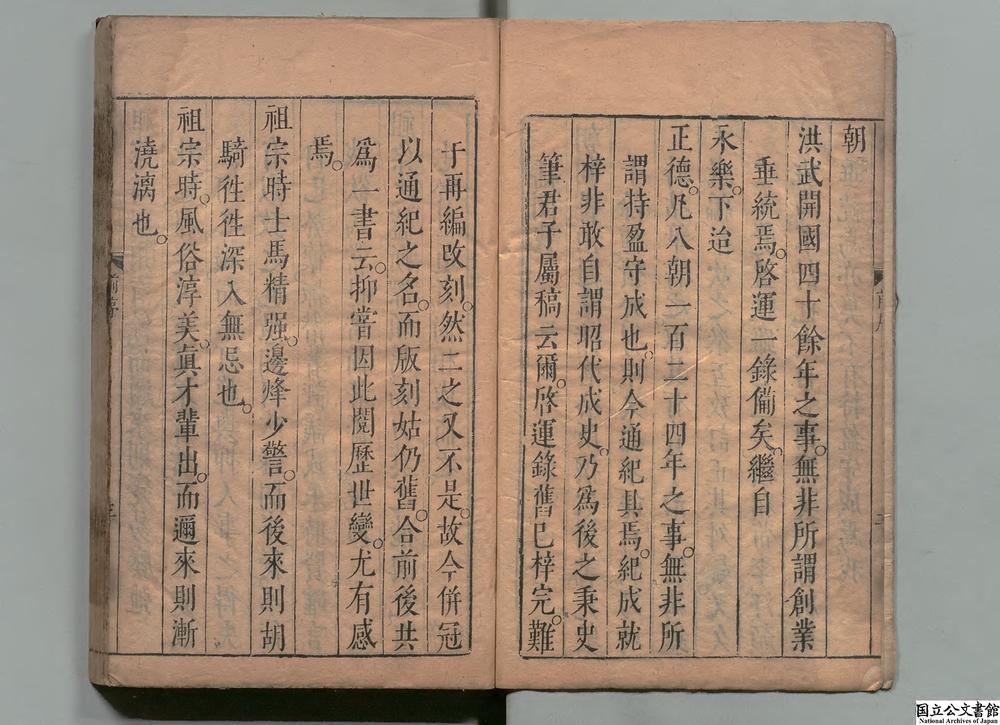 朝
洪武開國四十餘年之事。無非所謂創業
垂統焉。啓運一錄備矣。繼自
永樂。下迨
正德。凡八朝一百二十四年之事。無非所
謂持盈守成也。則今通紀具焉。紀成就
梓非敢自謂昭代成史。乃爲後之秉史
筆君子屬稿云爾。啓運錄舊已梓完。難
于再編改刻。然二之又不是。故今併冠
以通紀之名。而版刻姑仍舊。合前後共
爲一書云。抑嘗因此閱歷世變。尤有感
焉。
祖宗時士馬精强。邊烽少警。而後來則胡
騎徃徃深入無忌也。
祖宗時。風俗淳美。眞才輩出。而邇來則漸
澆漓也。
前序
國立公文書館
National Archives of Japan